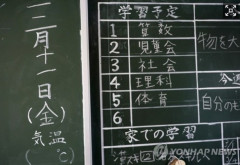 三月十一日(金)
気温
( ℃)
学習予定
1 算数
2 児童会
3 社会
4 理科
5 体育
6
家での学習
物を大
自分のも
YONHAPNEWS